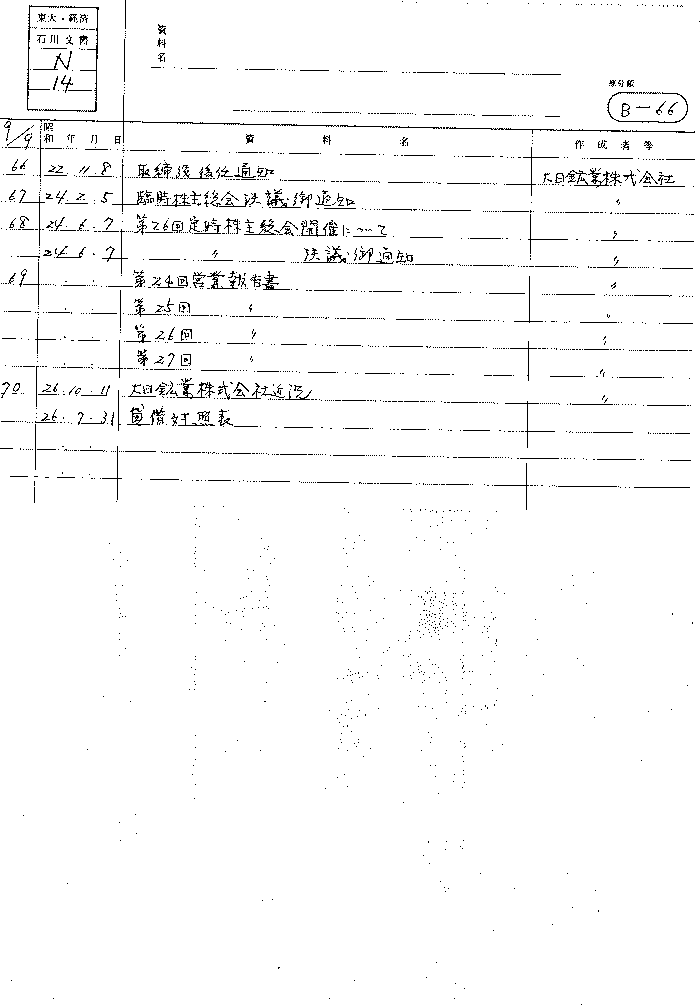 東大・経済
石川文書
N
14
資料名
原分類
B-66
9/9 昭和 年 月 日 資料名 作成者等
66 22.11.8 取締役後任通知 大日鉱業株式会社
67 24.2.5 臨時株主総会決議御通知 〃
68 24.6.7 第26回定時株主総会開催について 〃
24.6.7 〃 決議御通知 〃
69 . . 第24回営業報告書 〃
. . 第25回 〃 〃
. . 第26回 〃 〃
. . 第27回 〃 〃
70 26.10.11 大日鉱業株式会社近況 〃
26.7.31 貸借対照表